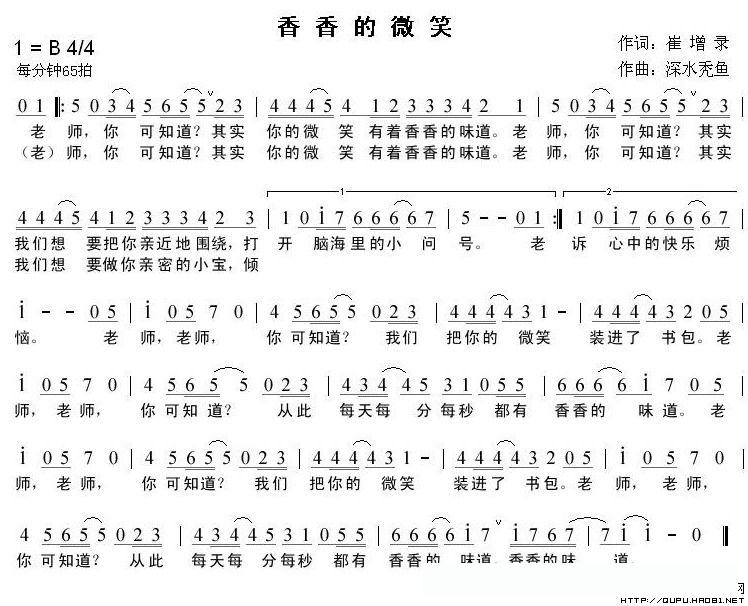 香香的微笑
1 = B 4/4
作词：崔增录
每分钟65拍
作曲：深水秃鱼
0 1 ‖: 5 0 3 4 5 6 5 5 ˅ 2 3 | 4 4 4 5 4 1 2 3 3 3 4 2 1 | 5 0 3 4 5 6 5 5 ˅ 2 3 |
老 师，你 可知道？其实 你的微 笑 有着香香的味道。老 师，你 可知道？其实
（老）师，你 可知道？其实 你的微 笑 有着香香的味道。老 师，你 可知道？其实
1 2
4 4 4 5 4 1 2 3 3 3 4 2 3 | 1 0 i 7 6 6 6 6 7 | 5 - - 0 1 :‖ 1 0 i 7 6 6 6 6 7 |
我们想 要把你亲近地围绕，打 开 脑海里的小 问 号。 老 诉 心中的快乐 烦
我们想 要做你亲密的小宝，倾
i - - 0 5 | i 0 5 7 0 | 4 5 6 5 5 0 2 3 | 4 4 4 4 3 1 - | 4 4 4 4 3 2 0 5 |
恼。 老 师，老师， 你 可知道？我们 把你的 微笑 装进了 书包。老
i 0 5 7 0 | 4 5 6 5 5 0 2 3 | 4 3 4 4 5 3 1 0 5 5 | 6 6 6 6 i 7 0 5 |
师，老师， 你 可知 道？ 从此 每天每 分每秒 都有 香香的 味道。老
i 0 5 7 0 | 4 5 6 5 5 0 2 3 | 4 4 4 4 3 1 - | 4 4 4 4 3 2 0 5 | i 0 5 7 0 |
师，老师， 你 可知道？我们 把你的 微笑 装进了 书包。老 师，老师，
4 5 6 5 5 0 2 3 | 4 3 4 4 5 3 1 0 5 5 | 6 6 6 6 i 7 ˅ i 7 6 7 | 7 i i - 0 ‖
你 可知道？ 从此 每天每 分每秒 都有 香香的 味道，香香的味 道。
网
HTTP://QUPU.HAO81.NET